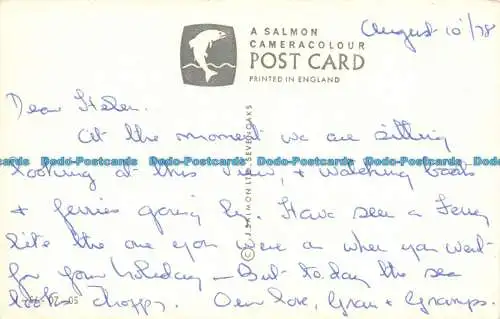 A SALMON
CAMERACOLOUR
POST CARD
PRINTED IN ENGLAND
August 10'/78
Dear Helen.
At the moment we are sitting
looking at this view, & watching boats
& ferries going by. Have seen a Ferry
like the one you were on when you went
for your holiday – But to-day the sea
looks choppy. Our love, Gran & Gramps.
© J. SALMON LTD. SEVENOAKS
Dodo-Postcards Dodo-Postcards Dodo-Postcards Dodo-Postcards Dodo-Postcards